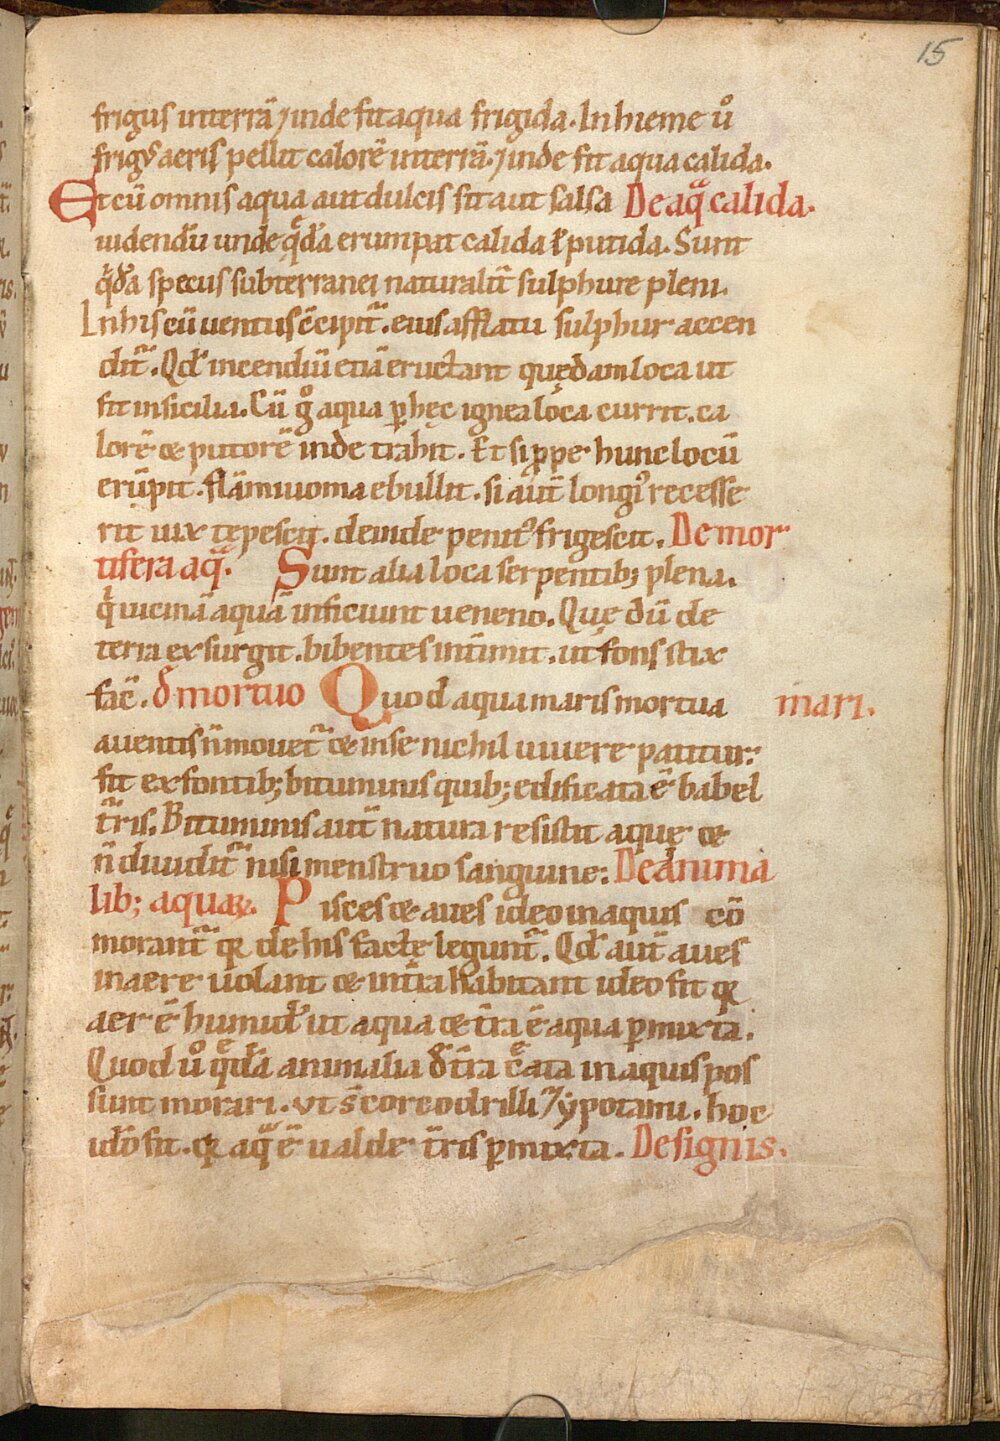 15
frigus interrā ⁊ inde fit aqua frigida. In hieme ů
frigꝰ aeris pellit calorē interrā. ⁊ inde fit aqua calida.
Et cū omnis aqua aut dulcis sit aut salsa De aqͣ calida.
uidendū unde qͣdā erumpat calida ł putida. Sunt
qͣdā specus subterranei naturalit̄ sulphure pleni.
In his cū uentus c̄cipit̄. eius afflatu sulphur accen
dit̄. Qđ incendiū etiā eructant quędam loca ut
fit in sicilia. Cū gͦ aqua ꝑ hęc ignea loca currit. ca
lorē & putorē inde trahit. Et si ꝓpe hunc locū
erūpit. flāmiuoma ebullit. si aut̄ longiꝰ recesse
rit uix tepescit. deinde penitꝰ frigescit. De mor
tifera aqͣ. Sunt alia loca serpentibꝫ plena.
qͥ uicinā aquā inficiunt ueneno. Quę dū de
teria exsurgit. bibentes int̄imit. ut fons stix
fac̄. đ mortuo Quod aqua maris mortua mari.
a uentis n̄ mouet̄ & in se nichil uiuere patitur:
fit ex fontibꝫ bituminis quibꝫ edificata ē babel
t̄ris. Bituminis aut̄ natura resistit aquę &
n̄ diuidit̄ nisi menstruo sanguine: De anima
libꝫ aquaꝝ. Pisces & aues ideo in aquis cō
morant̄ qꝛ de his factę legunt̄. Qđ aut̄ aues
in aere uolant & int̄ra habitant ideo fit qꝛ
aer ē humidꝰ ut aqua & t̄ra ē aqua ꝑmixta.
Quod ů qͤdā animalia đ t̄ra c̄ata in aquis pos
sunt morari. vt s̄ corcodrilli ⁊ ypotami. hoc
idō fit. qꝛ aqͣ ē ualde t̄ris ꝑmixta. De signis.